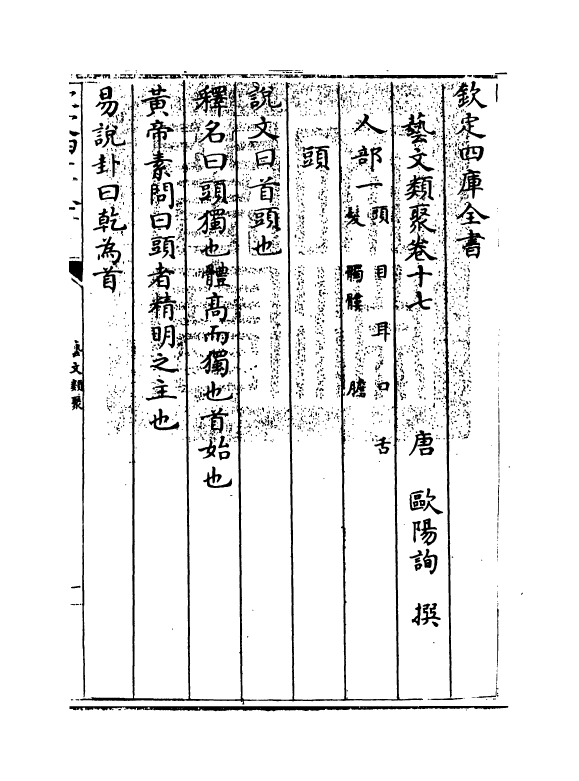 欽定四庫全書
藝文類聚卷十七
唐 歐陽詢 撰
人部一 頭 目 耳 口 舌
髮 髑髏 膽
頭
說文曰首頭也
釋名曰頭獨也體髙而獨也首始也
黃帝素問曰頭者精明之主也
易說卦曰乾為首
藝文類聚
一